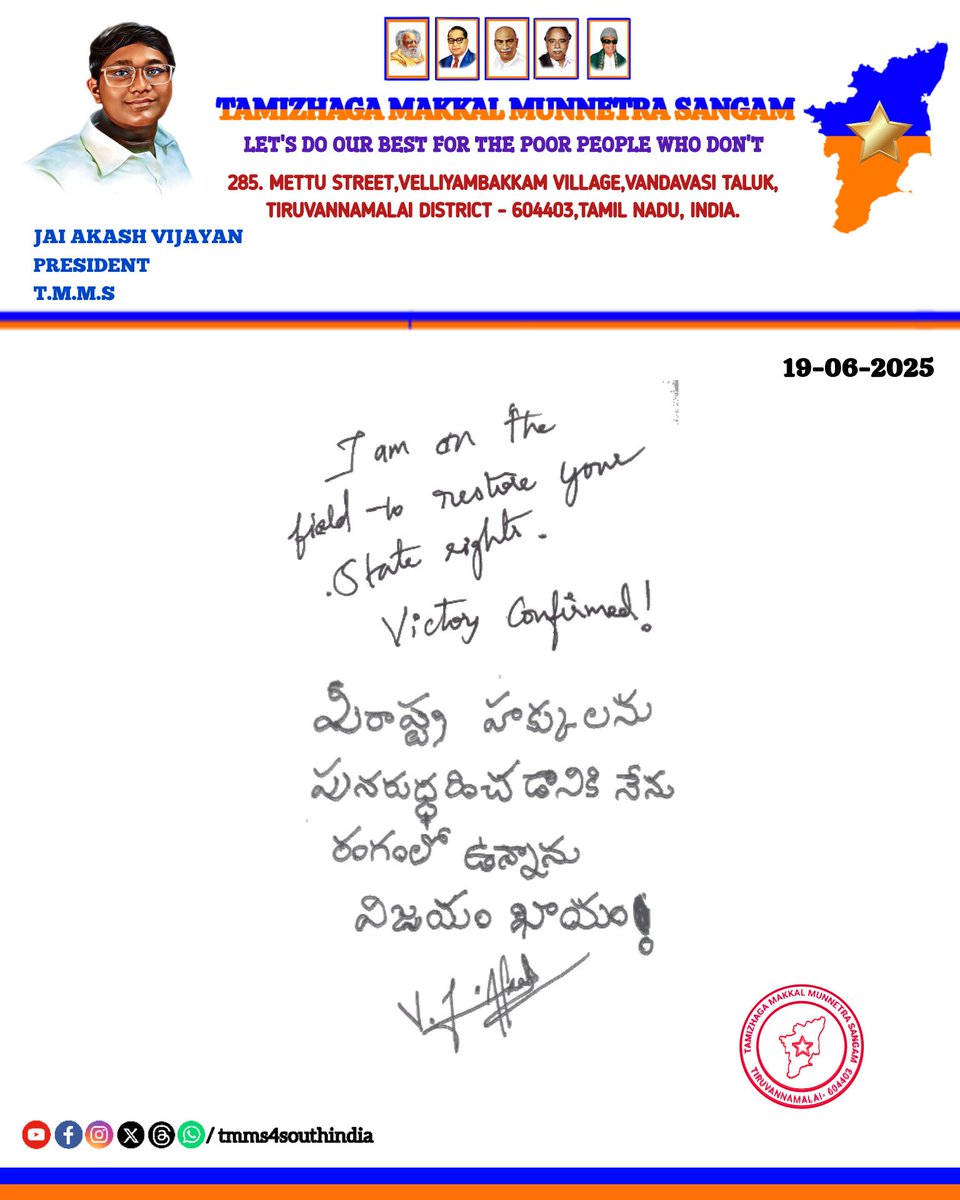 TAMIZHAGA MAKKAL MUNNETRA SANGAM
LET'S DO OUR BEST FOR THE POOR PEOPLE WHO DON'T
285. METTU STREET,VELLIYAMBAKKAM VILLAGE,VANDAVASI TALUK,
TIRUVANNAMALAI DISTRICT - 604403,TAMIL NADU, INDIA.
JAI AKASH VIJAYAN
PRESIDENT
T.M.M.S
19-06-2025
I am on the
field to restore your
State rights.
Victory Confirmed!
మీరాష్ట్ర హక్కులను
పునరుద్ధరించడానికి నేను
రంగంలో ఉన్నాను
విజయం ఖాయం!
V. J. Akash
TAMIZHAGA MAKKAL MUNNETRA SANGAM
TIRUVANNAMALAI- 604403
/ tmms4southindia